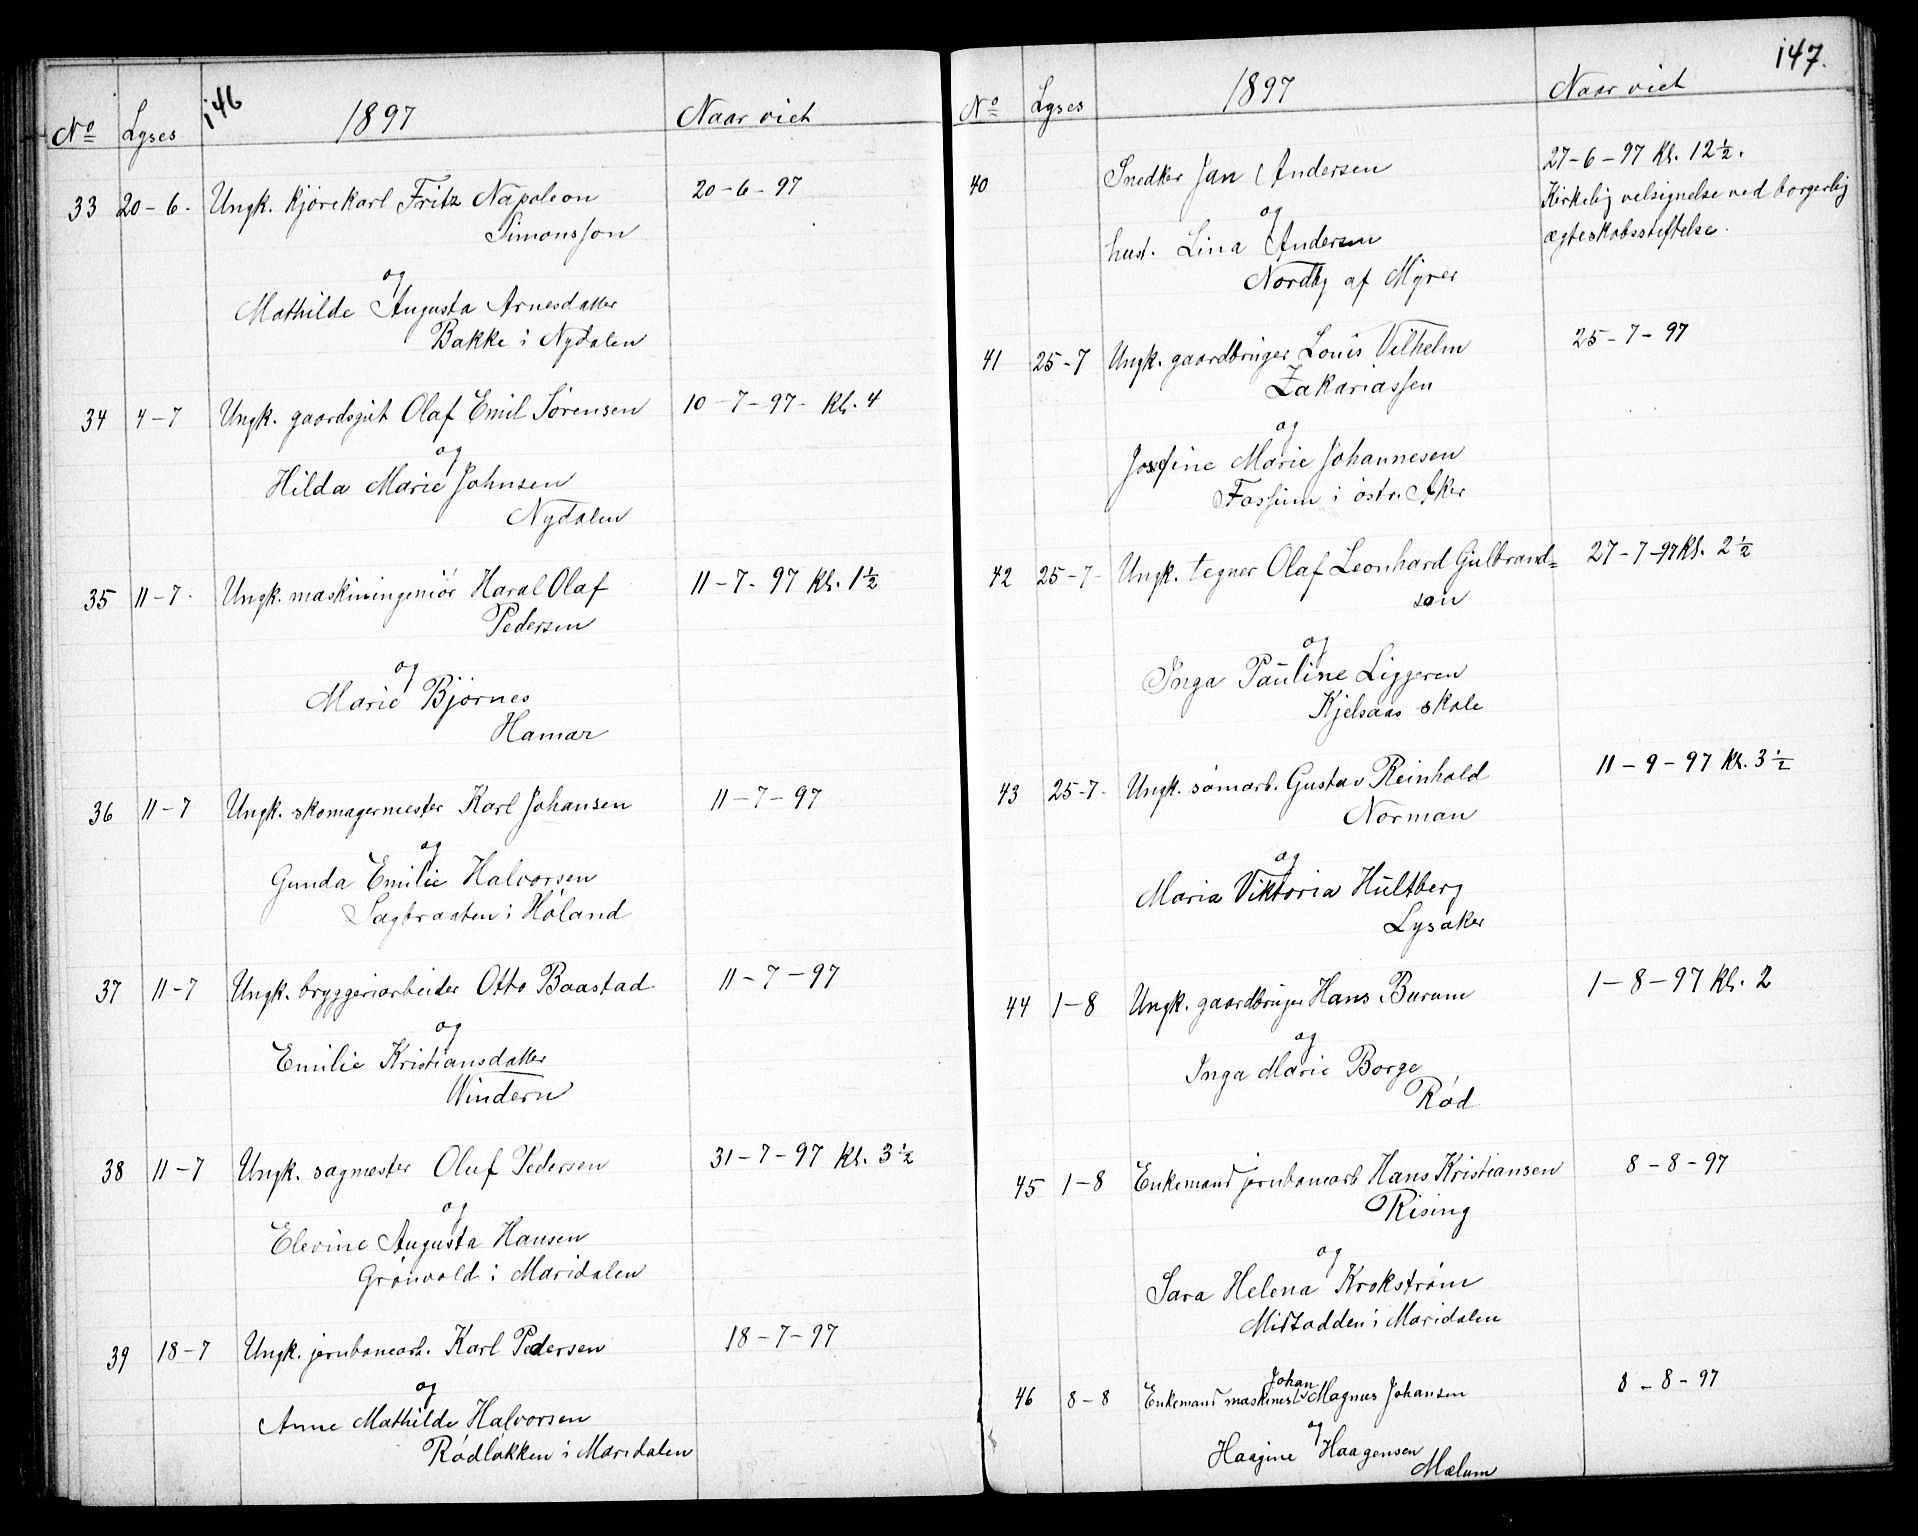 146
No Lyses 1897 Naar viet
33 20-6- Ungk. kjörekarl Fritz Napoleon 20-6-97
Simonsson
og
Mathilde Augusta Arnesdatter
Bakke i Nydalen
34 4-7 Ungk. gaardsgut Olaf Emil Sörensen 10-7-97- Kl. 4
og
Hilda Marie Johnsen
Nydalen
35 11-7- Ungk. maskiningeniör Haral Olaf 11-7-97 Kl. 1½
Pedersen
og
Marie Björnes
Hamar
36 11-7 Ungk. skomagermester Karl Johansen 11-7-97
og
Gunda Emilie Halvorsen
Sagbraaten i Höland
37 11-7 Ungk. bryggeriarbeider Otto Baastad 11-7-97
og
Emilie Kristiansdatter
Vindern
38 11-7 Ungk. sagmester Oluf Pedersen 31-7-97 Kl. 3½
og
Elevine Augusta Hansen
Grönvold i Maridalen
39 18-7 Ungk. jernbanearb. Karl Pedersen 18-7-97
og
Anne Mathilde Halvorsen
Rödlökken i Maridalen
147.
No Lyses 1897 Naar viet
40 Snedker Jan Andersen 27-6-97 Kl. 12½.
Kirkelig velsignelse ved borgerlig
og
hust. Lina Andersen ægteskabsstiftelse.
Nordby af Myrer
41 25-7 Ungk. gaardbruger Louis Vilhelm 25-7-97
Zakariassen
og
Josefine Marie Johannesen
Fossum i östr. Aker
42 25-7- Ungk. tegner Olaf Leonhard Gulbrand= 27-7-97 Kl. 2½
sen
og
Inga Pauline Liggeren
Kjelsaas skole
43 25-7- Ungk. sömarb. Gustav Reinhold 11-9-97 Kl. 3½
Norman
og
Maria Viktoria Hultberg
Lysaker
44 1-8 Ungk. gaardbruger Hans Burum 1-8-97 Kl. 2
og
Inga Marie Borge
Röd
45 1-8 Enkemand jernbanearb Hans Kristiansen 8-8-97
Rising
og
Sara Helena Krokström
Midtodden i Maridalen
46 8-8 Enkemand maskinist Johan Magnus Johansen 8-8-97
og
Haagine Haagensen
Mælum